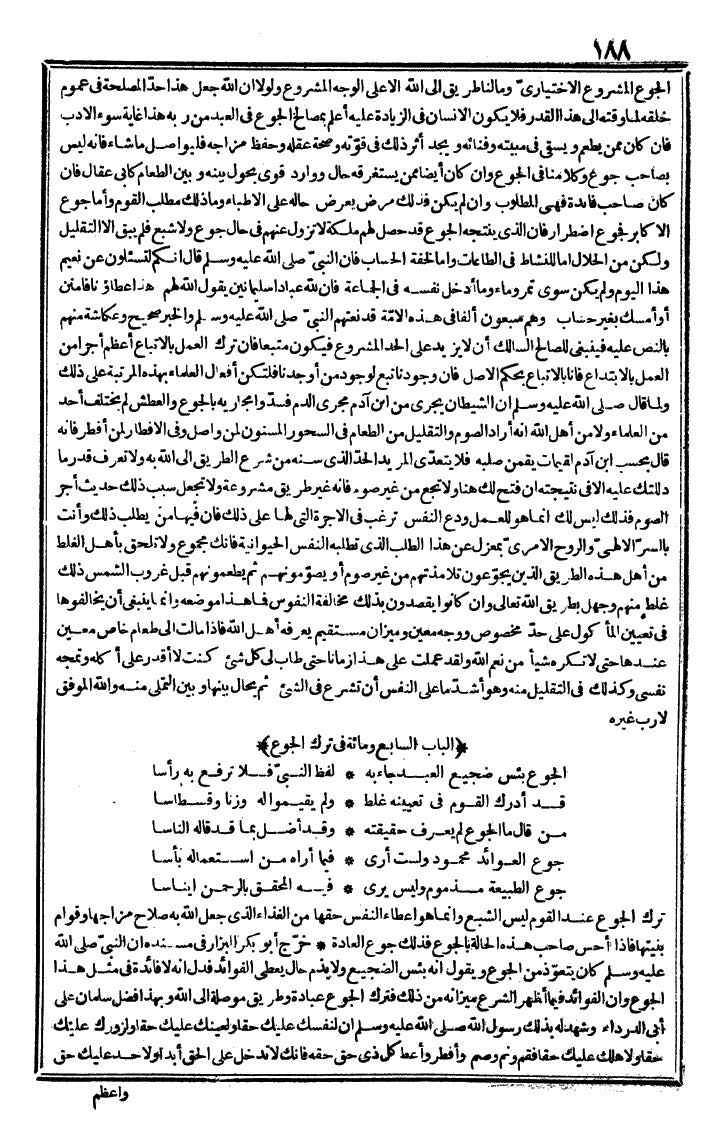 ١٨٨
الجوع المشروع الاختيارىّ ومالنا طريق الى الله الا على الوجه المشروع ولولا ان الله جعل هذا حدّ المصلحة فى عموم
خلقه لما وقته الى هذا القدر فلا يكون الانسان فى الزيادة عليه أعلم بمصالح الجوع فى العبد من ربه هذا غاية سوء الادب
فان كان ممن يطعم ويسقى فى مبيته وفنائه ويجد أثر ذلك فى قوّته وصحة عقله وحفظ مزاجه فليواصل ما شاء فانه ليس
بصاحب جوع وكلامنا فى الجوع وان كان أيضا ممن يستغرقه حال ووارد قوى يحول بينه وبين الطعام كابى عقال فان
كان صاحب فائدة فهى المطلوب وان لم يكن فذلك مرض يعرض حاله على الاطباء وما ذلك مطلب القوم وأما جوع
الا كابر فجوع اضطرار فان الذى ينتجه الجوع قد حصل لهم ملكة لا تزول عنهم فى حال جوع ولا شبع فلم يبق الا التقليل
ولكن من الحلال اما للنشاط فى الطاعات واما لخفة الحساب فان النبىّ صلى الله عليه وسلم قال انكم لتسئلون عن نعيم
هذا اليوم ولم يكن سوى تمر وماء وما أدخل نفسه فى الجماعة فان لله عبادا سليمانيين يقول الله لهم هذا عطاؤنا فامنن
أو أمسك بغير حساب وهم سبعون ألفا فى هذه الامّة قد نعتهم النبىّ صلى الله عليه وسلم والخبر صحيح وعكاشة منهم
بالنص عليه فينبغى للصالح السالك أن لا يزيد على الحد المشروع فيكون متبعا فان ترك العمل بالاتباع أعظم أجرا من
العمل بالابتداع فانا بالاتباع بحكم الاصل فان وجودنا تبع لوجود من أوجدنا فلتكن أفعال العلماء بهذه المرتبة على ذلك
ولما قال صلى الله عليه وسلم ان الشيطان يجرى من ابن آدم مجرى الدم فسدّوا مجاريه بالجوع والعطش لم يختلف أحد
من العلماء ولا من أهل الله انه أراد الصوم والتقليل من الطعام فى السحور المسنون لمن واصل وفى الافطار لمن أفطر فانه
قال بحسب ابن آدم لقيمات يقمن صلبه فلا يتعدّى المريد الحدّ الذى سنه من شرع الطريق الى الله به ولا تعرف قدر ما
دللتك عليه الا فى نتيجته ان فتح لك هنا ولا تجع من غير صوم فانه غير طريق مشروعة ولا تجعل سبب ذلك حديث أجر
الصوم فذلك ليس لك انما هو للعمل ودع النفس ترغب فى الاجرة التى لها على ذلك فان فيها من يطلب ذلك وأنت
بالسرّ الالهىّ والروح الامرىّ بمعزل عن هذا الطلب الذى تطلبه النفس الحيوانية فانك مجموع ولا تلحق بأهل الغلط
من أهل هذه الطريق الذين يجوّعون تلامذتهم من غير صوم أو يصوّمونهم ثم يطعمونهم قبل غروب الشمس ذلك
غلط منهم وجهل بطريق الله تعالى وان كانوا يقصدون بذلك مخالفة النفوس فما هذا موضعه وانما ينبغى أن يخالفوها
فى تعيين المأ كول على حدّ مخصوص ووجه معين وميزان مستقيم يعرفه أهل الله فاذا مالت الى طعام خاص معين
عندها حتى لا تكره شيأ من نعم الله ولقد عملت على هذا زمانا حتى طاب لى كل شئ كنت لا أقدر على أكله وتمجه
نفسى وكذلك فى التقليل منه وهو أشدّ ما على النفس أن تشرع فى الشئ ثم يحال بينها وبين التملى منه والله الموفق
لا رب غيره
﴿الباب السابع ومائة فى ترك الجوع﴾
الجوع بئس ضجيع العبد جاء به * لفظ النبىّ فلا ترفع به رأسا
قد أدرك القوم فى تعيينه غلط * ولم يقيموا له وزنا وقسطاسا
من قال ما الجوع لم يعرف حقيقته * وقد أضل بما قد قاله الناسا
جوع العوائد محمود ولست أرى * فيما أراه من استعماله بأسا
جوع الطبيعة مذموم وليس يرى * فيه المحقق بالرحمن ايناسا
ترك الجوع عند القوم ليس الشبع وانما هو اعطاء النفس حقها من الغذاء الذى جعل الله به صلاح مزاجها وقوام
بنيتها فاذا أحس صاحب هذه الحالة بالجوع فذلك جوع العادة * خرّج أبو بكر البزار فى مسنده ان النبىّ صلى الله
عليه وسلم كان يتعوّذ من الجوع ويقول انه بئس الضجيع ولا يذم حال يعطى الفوائد فدل انه لا فائدة فى مثل هذا
الجوع وان الفوائد فيما أظهر الشرع ميزانه من ذلك فترك الجوع عبادة وطريق موصلة الى الله وبهذا فضل سلمان على
أبى الدرداء وشهد له بذلك رسول الله صلى الله عليه وسلم ان لنفسك عليك حقا ولعينك عليك حقا ولزورك عليك
حقا ولاهلك عليك حقا فقم ونم وصم وأفطر وأعط كل ذى حق حقه فانك لا تدخل على الحق أبدا ولاحد عليك حق
واعظم